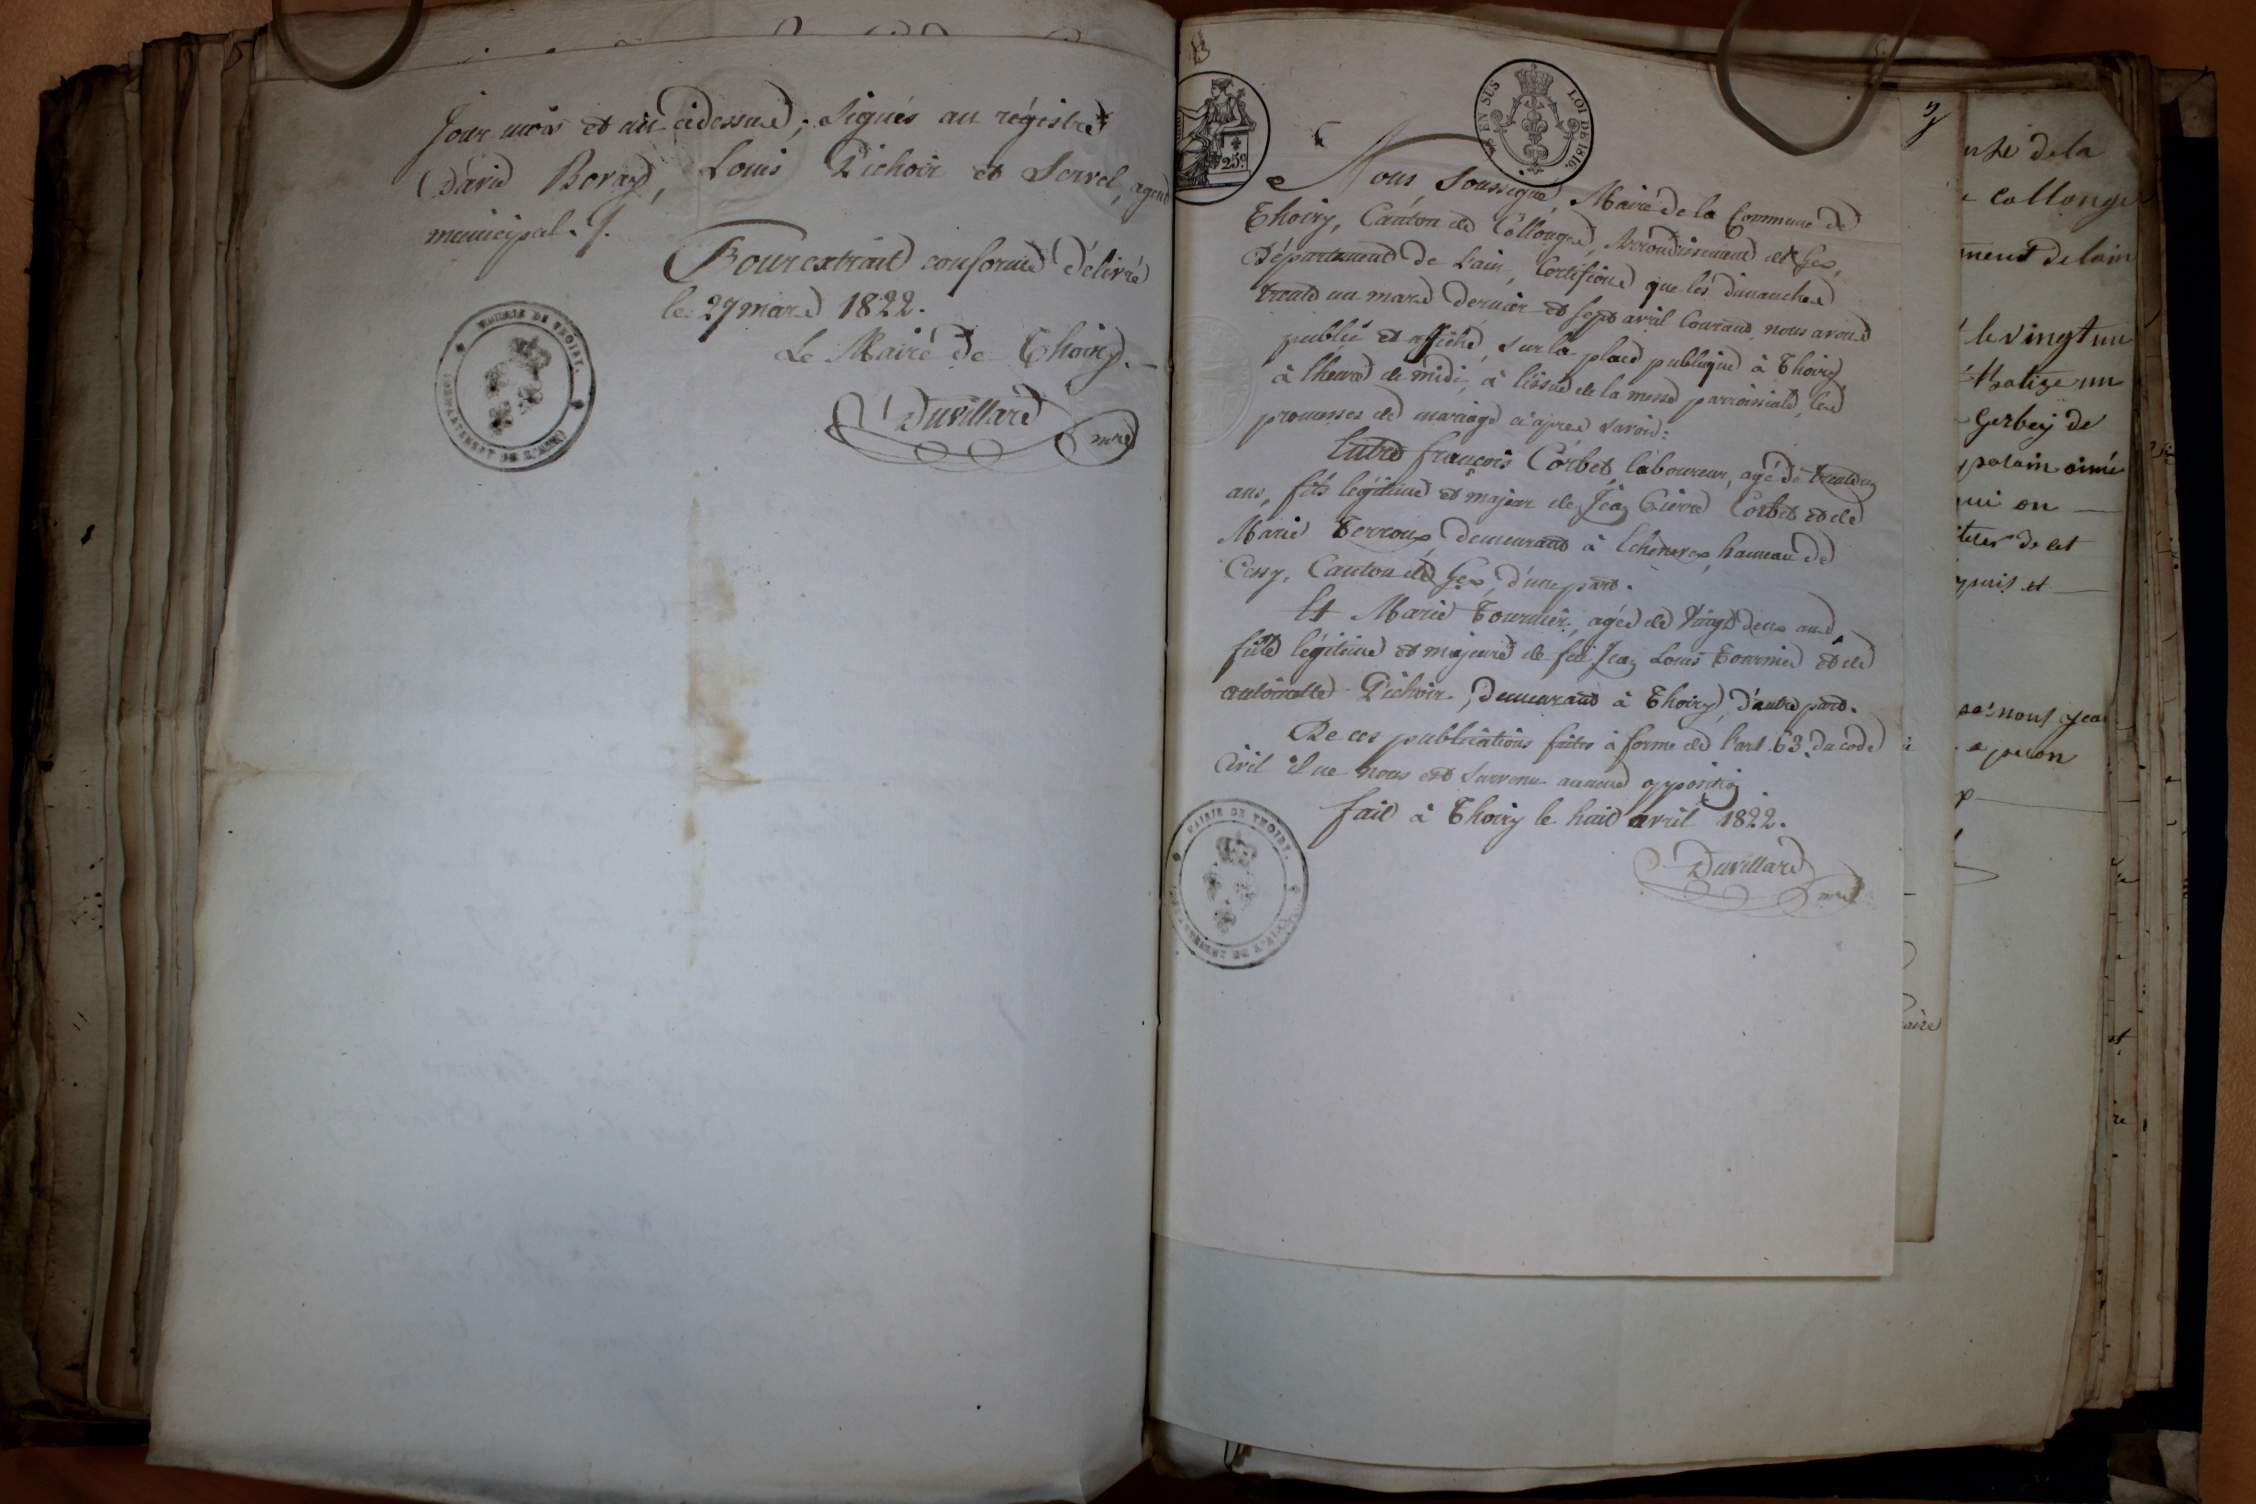 Jour mois et an cidessus; signés au régistre
David Boray, Louis Pichoir et Servel, agent
municipal.
Pour extrait conforme délivré
le 27 mars 1822.
Le Maire de Thoiry.
Duvillard
mre
MAIRIE DE THOIRY.
DÉPARTEMENT DE L'AIN
25c.
EN SUS
LOI DE 1816.
Nous, Soussigné, Maire de la Commune de
Thoiry, Canton de Collonges, Arrondissement de Gex,
Département de l'ain, Certifions que les dimanches
trente un mars dernier et sept avril Courant, nous avons
publié et affiché, sur la place publique à Thoiry
à lheure de midi, à lissue de la messe parroissiale, les
promesses de mariage ci après savoir:
Entre françois Corbet, laboureur, agé de
ans, fils légitime et majeur de Jean Pierre Corbet et de
Marie Perroux, demeurant à Echenevex, hameau de
Cessy, Canton de Gex, d'une part.
Et Marie Tournier, agée de vingt deux ans,
fille légitime et majeure de feu Jean Louis Tournier et de
antoinette Pichoir, demeurant à Thoiry, d'autre part.
De ces publications faites à forme de l'art. 63. du code
Civil il ne nous est survenu aucune opposition
fait à Thoiry le huit avril 1822.
Duvillard
mre
MAIRIE DE THOIRY.
DÉPARTEMENT DE L'AIN
de la
collonge
ment de lain
le vingt un
un
Gerbey de
qui on
de cet
et
nous jean
aire